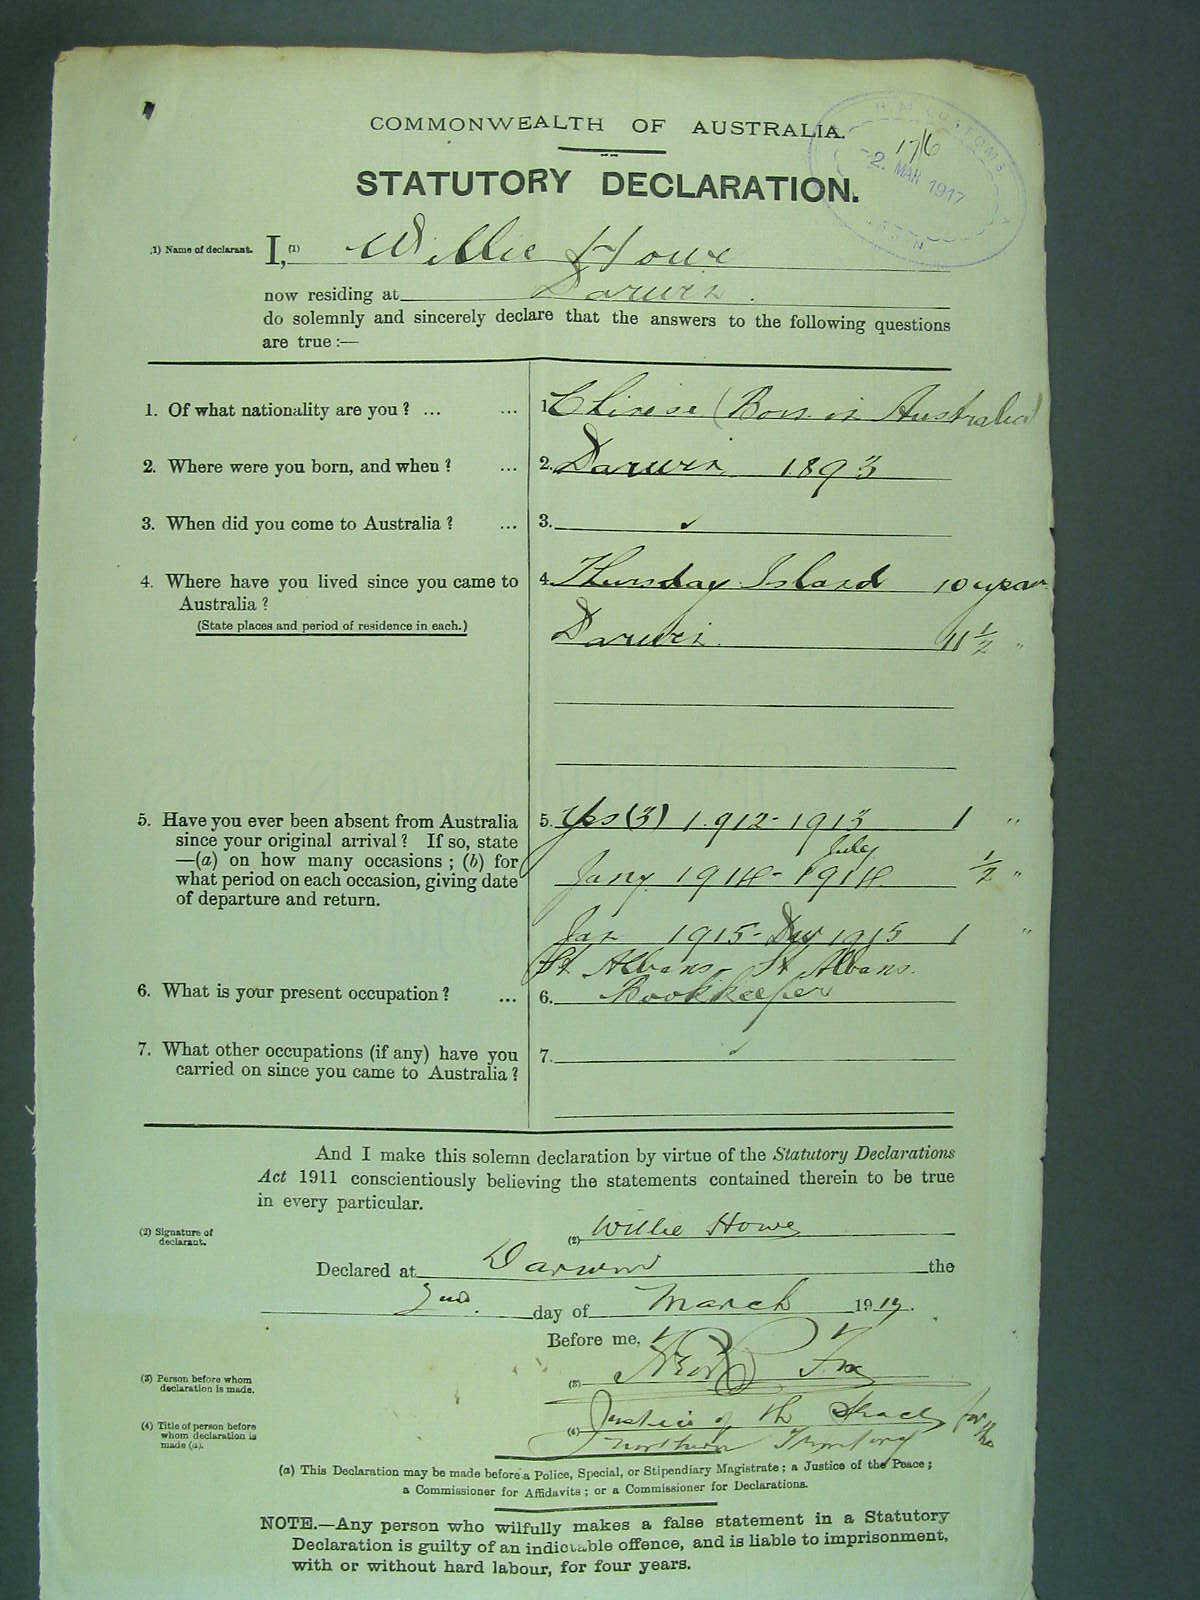 COMMONWEALTH OF AUSTRALIA.
H.M. CUSTOMS
17/6
-2. MAR 1917
STATUTORY DECLARATION.
(1) Name of declarant. I, (1) Willie Howe
now residing at Darwin.
do solemnly and sincerely declare that the answers to the following questions
are true :—
1. Of what nationality are you ? ... ... 1. Chinese (Born in Australia)
2. Where were you born, and when ? ... 2. Darwin, 1893
3. When did you come to Australia ? ... 3. ✓
4. Where have you lived since you came to 4. Thursday Island 10 years
Australia ?
(State places and period of residence in each.) Darwin. 11 1/2 "
5. Have you ever been absent from Australia 5. Yes (3) 1912 - 1913 1 "
since your original arrival ? If so, state
—(a) on how many occasions ; (b) for July
what period on each occasion, giving date Jany 1914 - 1914 1/2 "
of departure and return.
Jan 1915 - Dec 1915 1 "
St Albans, St Albans.
6. What is your present occupation ? ... 6. Bookkeeper
7. What other occupations (if any) have you 7. ✓
carried on since you came to Australia ?
And I make this solemn declaration by virtue of the Statutory Declarations
Act 1911 conscientiously believing the statements contained therein to be true
in every particular.
(2) Signature of
declarant. (2) Willie Howe
Declared at Darwin the
2nd. day of March 1917.
Before me,
(3) Person before whom
declaration is made. (3)
(4) Title of person before
whom declaration is
made (a). (4) Justice of the Peace for the
Northern Territory
(a) This Declaration may be made before a Police, Special, or Stipendiary Magistrate ; a Justice of the Peace ;
a Commissioner for Affidavits ; or a Commissioner for Declarations.
NOTE.—Any person who wilfully makes a false statement in a Statutory
Declaration is guilty of an indictable offence, and is liable to imprisonment,
with or without hard labour, for four years.